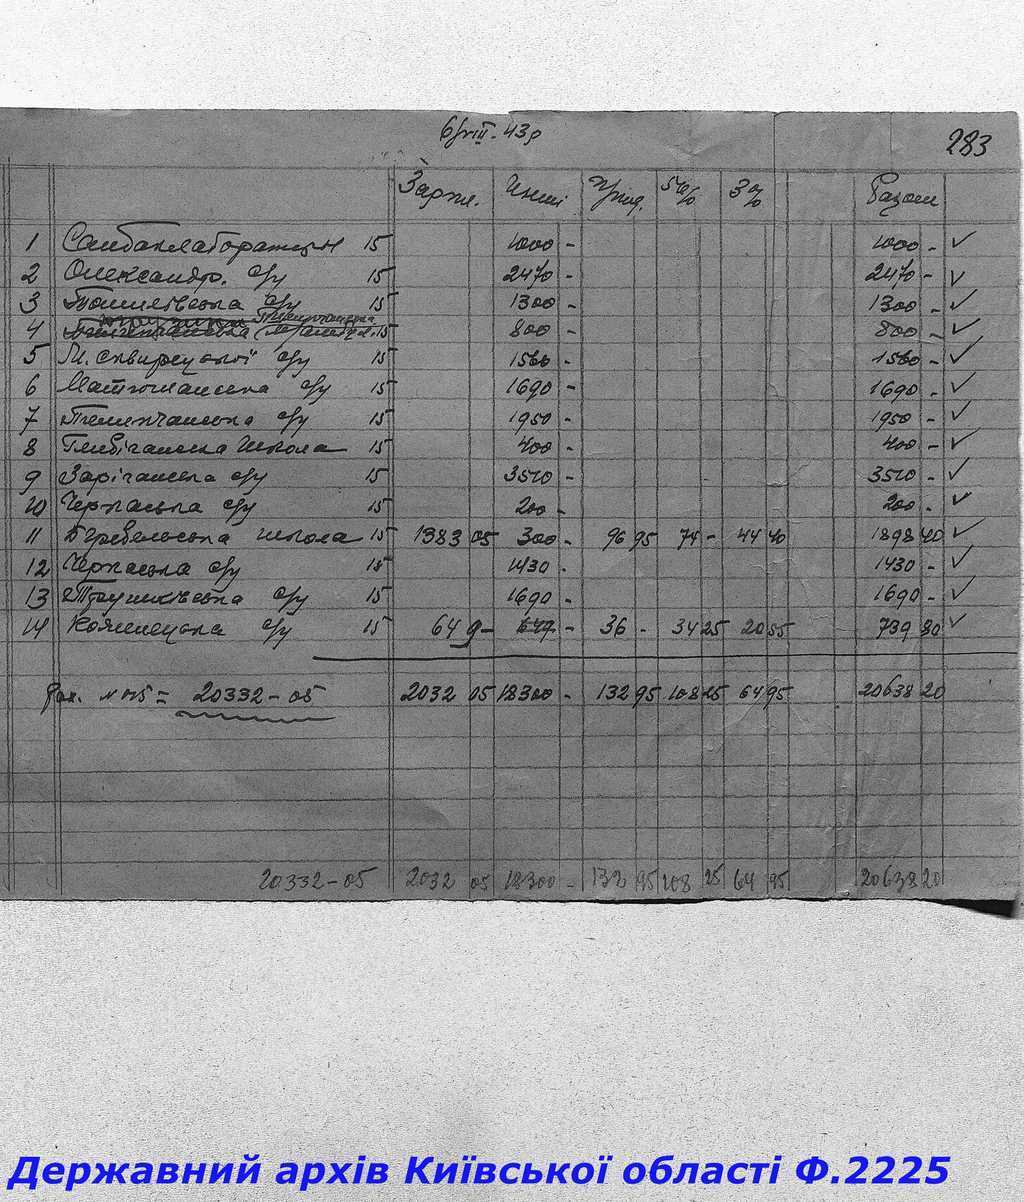 6/VIII. 43р
283
Зарпл. Инші Приб. 5% 3% Разом
1 Санбаклабораторія 15 1000 - 1000 - ✓
2 Олександр. с/у 15 2470 - 2470 - ✓
3 с/у 15 1300 - 1300 - ✓
4 15 800 - 800 - ✓
5 М. Сквирецької с/у 15 1560 - 1560 - ✓
6 с/у 15 1690 - 1690 - ✓
7 Теленчанська с/у 15 1950 - 1950 - ✓
8 школа 15 400 - 400 - ✓
9 с/у 15 3510 - 3510 - ✓
10 Черкаська с/у 15 200 - 200 - ✓
11 школа 15 1383 05 300 - 96 95 74 - 44 40 1898 40 ✓
12 Черкаська с/у 15 1430 - 1430 - ✓
13 Трушківська с/у 15 1690 - 1690 - ✓
14 с/у 15 649 - 36 - 34 25 20 55 739 80 ✓
Рах. № 015 = 20332-05 2032 05 18300 - 132 95 108 25 64 95 20638 20
20332-05 2032 05 18300 - 132 95 108 25 64 95 20638 20
Державний архів Київської області Ф.2225